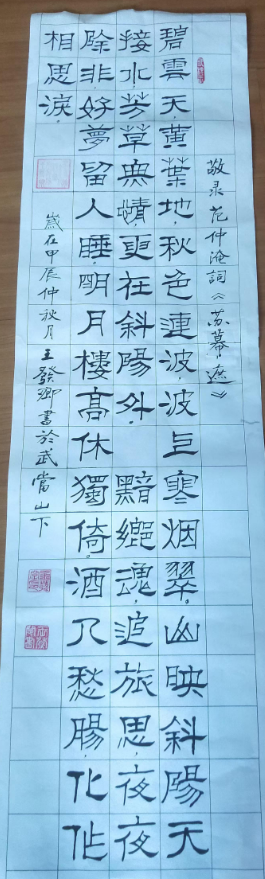 敬录范仲淹詞《苏幕遮》
碧雲天黃葉地秋色連波波上寒烟翠山映斜陽天
接水芳草無情更在斜陽外 黯鄉魂追旅思夜夜
除非好夢留人睡明月樓高休獨倚酒入愁腸化作
相思淚
歲在甲辰仲秋月王發卿書於武當山下